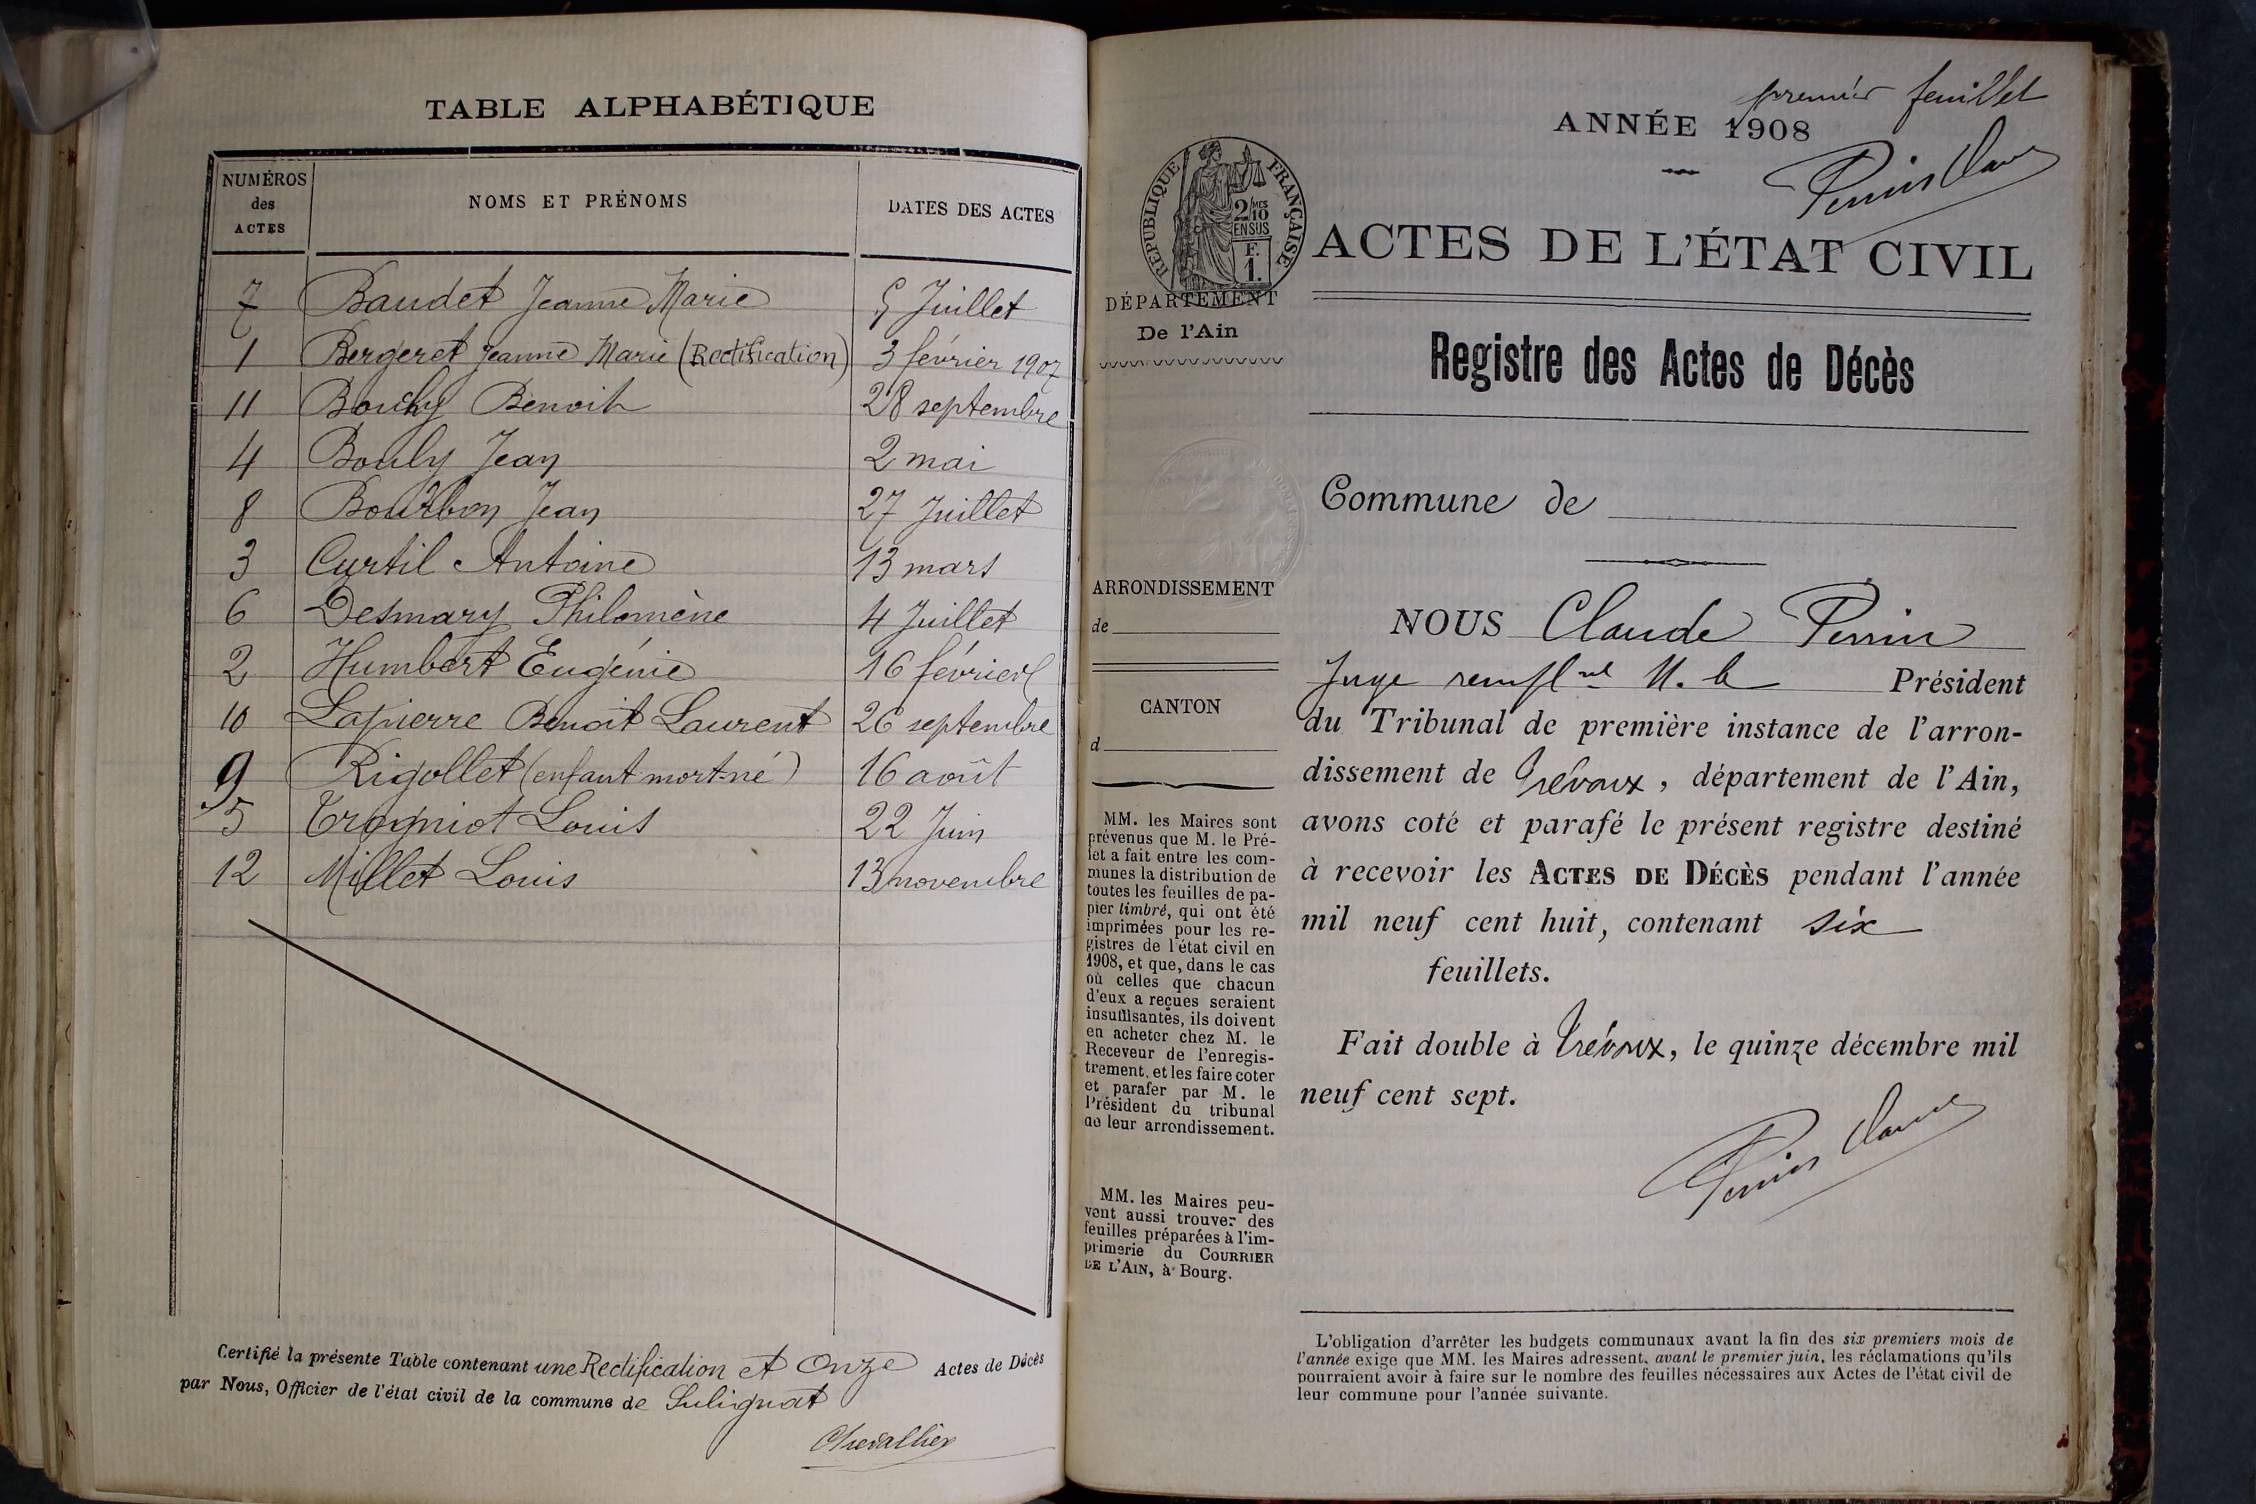 TABLE ALPHABÉTIQUE
NUMÉROS des ACTES NOMS ET PRÉNOMS DATES DES ACTES
7 Baudet Jeanne Marie 5 Juillet
1 Bergeret Jeanne Marie (Rectification) 3 février 1907
11 Bouchy Benoit 28 septembre
4 Bouly Jean 2 mai
8 Bourbon Jean 27 Juillet
3 Curtil Antoine 13 mars
6 Desmary Philomène 4 Juillet
2 Humbert Eugénie 16 février
10 Lapierre Benoit Laurent 26 septembre
9 Rigollet (enfant mort-né) 16 août
5 Trogniot Louis 22 Juin
12 Millet Louis 13 novembre
Certifié la présente Table contenant une Rectification et Onze Actes de Décès
par Nous, Officier de l'état civil de la commune de Sulignat
Chevallier
premier feuillet
ANNÉE 1908
Perrin Claude
RÉPUBLIQUE FRANÇAISE
2/10 MES
EN SUS
F.
1.
ACTES DE L'ÉTAT CIVIL
DÉPARTEMENT
De l'Ain
Registre des Actes de Décès
Commune de
ARRONDISSEMENT
de
CANTON
d
MM. les Maires sont
prévenus que M. le Pré-
fet a fait entre les com-
munes la distribution de
toutes les feuilles de pa-
pier timbré, qui ont été
imprimées pour les re-
gistres de l'état civil en
1908, et que, dans le cas
où celles que chacun
d'eux a reçues seraient
insuffisantes, ils doivent
en acheter chez M. le
Receveur de l'enregis-
trement, et les faire coter
et parafer par M. le
Président du tribunal
de leur arrondissement.
MM. les Maires peu-
vent aussi trouver des
feuilles préparées à l'im-
primerie du COURRIER
DE L'AIN, à Bourg.
NOUS Claude Perrin
Juge rempl nt M. le Président
du Tribunal de première instance de l'arron-
dissement de Trévoux, département de l'Ain,
avons coté et parafé le présent registre destiné
à recevoir les ACTES DE DÉCÈS pendant l'année
mil neuf cent huit, contenant six
feuillets.
Fait double à Trévoux, le quinze décembre mil
neuf cent sept.
Perrin Claude
L'obligation d'arrêter les budgets communaux avant la fin des six premiers mois de
l'année exige que MM. les Maires adressent, avant le premier juin, les réclamations qu'ils
pourraient avoir à faire sur le nombre des feuilles nécessaires aux Actes de l'état civil de
leur commune pour l'année suivante.